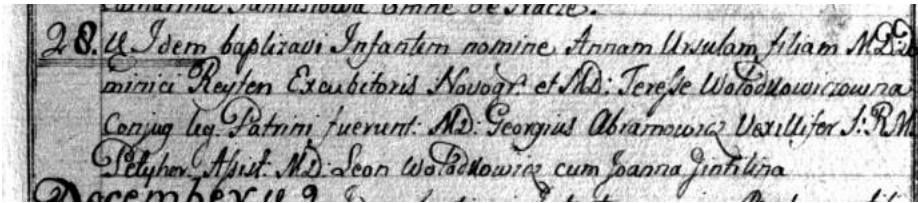 28. U Idem baptizavi Infantem nomine Annam Ursulam filiam MD: Do
minici Reyten Excubitoris Novogr: et MD: Teresse Wołodkowiczowna
Conjug leg. Patrini fuerunt: MD: Georgius Abramowicz Vexillifer S: R M
Petyhor. Assist: MD: Leon Wołodkowicz cum Joanna
December